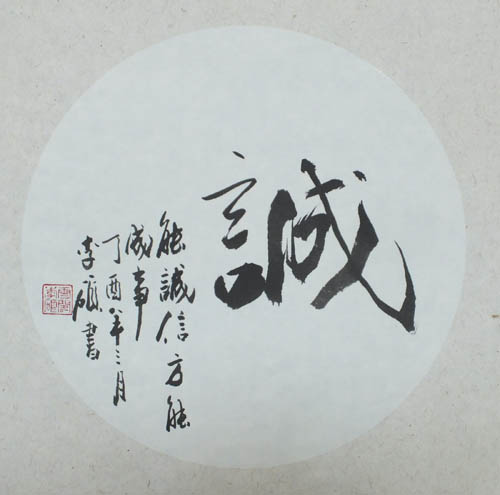 誠
能誠信方能
成事
丁酉年三月
李碩書